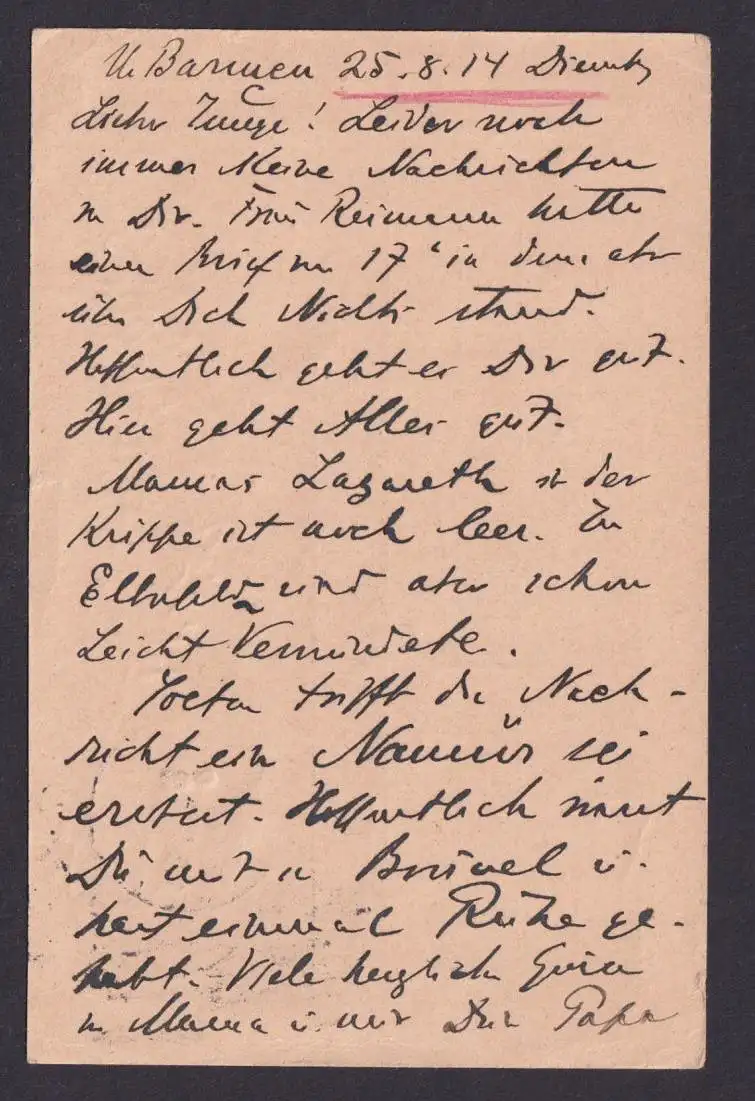 U. Barmen 25.8.14 Dienstg
Lieber Junge! Leider noch
immer keine Nachrichten
v Dir. Frau Reimann hatte
einen Brief vom 17 in dem aber
über Dich Nichts stand.
Hoffentlich geht es Dir gut.
Hier geht Alles gut.
Mamas Lazareth in der
Krippe ist noch leer. In
Elberfeld sind aber schon
Leicht Verwundete.
Soeben trifft die Nach-
richt ein Namur sei
erobert. Hoffentlich
Du mit in Brüssel u.
hast einmal Ruhe ge-
habt. Viele herzliche Grüsse
v Mama u. mir Dein Papa